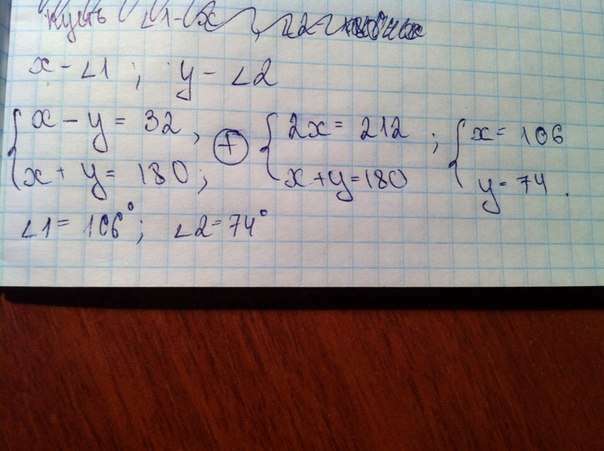 Пусть ∠1-x, ∠2
x - ∠1 ; y - ∠2
{ x - y = 32, x + y = 180; ⊕ { 2x = 212 ; x + y = 180 { x = 106 y = 74.
∠1 = 106° ; ∠2 = 74°